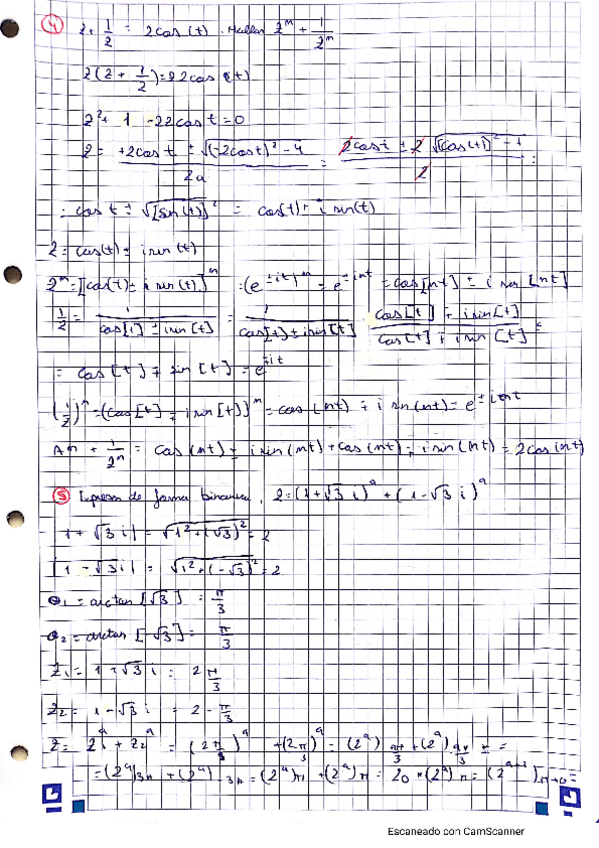 4 z + 1/2 = 2cos(t). Hallar z^n + 1/z^n
2(2 + 1/2) = 2 2cos(t)
2² + 1 - 22cos t = 0
2 = +2cos t ± √(-2cos t)² - 4 / 2a = 2cos t ± 2 √(cos(t))² - 1 / 2 =
= cos t ± √[sin(t)]² = cos(t) ± i sin(t)
2 = cos(t) ± i sin(t)
2^n = [cos(t) ± i sin(t)]^n = (e^±it)^n = e^±int = cos[nt] ± i sen[nt]
1/2 = 1 / cos[t] ± i sin[t] = 1 / cos[t] ± i sin[t] · cos[t] ∓ i sin[t] / cos[t] ∓ i sin[t] =
= cos[t] ∓ sin[t] = e^∓it
(1/2)^n = (cos[t] ∓ i sin[t])^n = cos(nt) ∓ i sin(nt) = e^±int
+ 1/2^n = cos(nt) ± i sin(nt) + cos(nt) ∓ i sin(nt) = 2cos(nt)
5 Expresa de forma binomica, 2 = (1+√3 i)^9 + (1-√3 i)^9
1 + √3 i| = √1² + (√3)² = 2
|1 - √3 i| = √1² + (-√3)² = 2
θ1 = arctan[√3] = π/3
θ2 = arctan[-√3] = π/3
Z1 = 1+√3 i = 2 π/3
Z2 = 1-√3 i = 2 - π/3
Z = 2^9 + 2₂^9 = (2 π/3)^9 + (2 π/3)^9 = (2^9) 9π/3 + (2^9)
= (2^9)3π + (2^9) 3π = (2^9)π + (2^9)π =
Escaneado con CamScanner